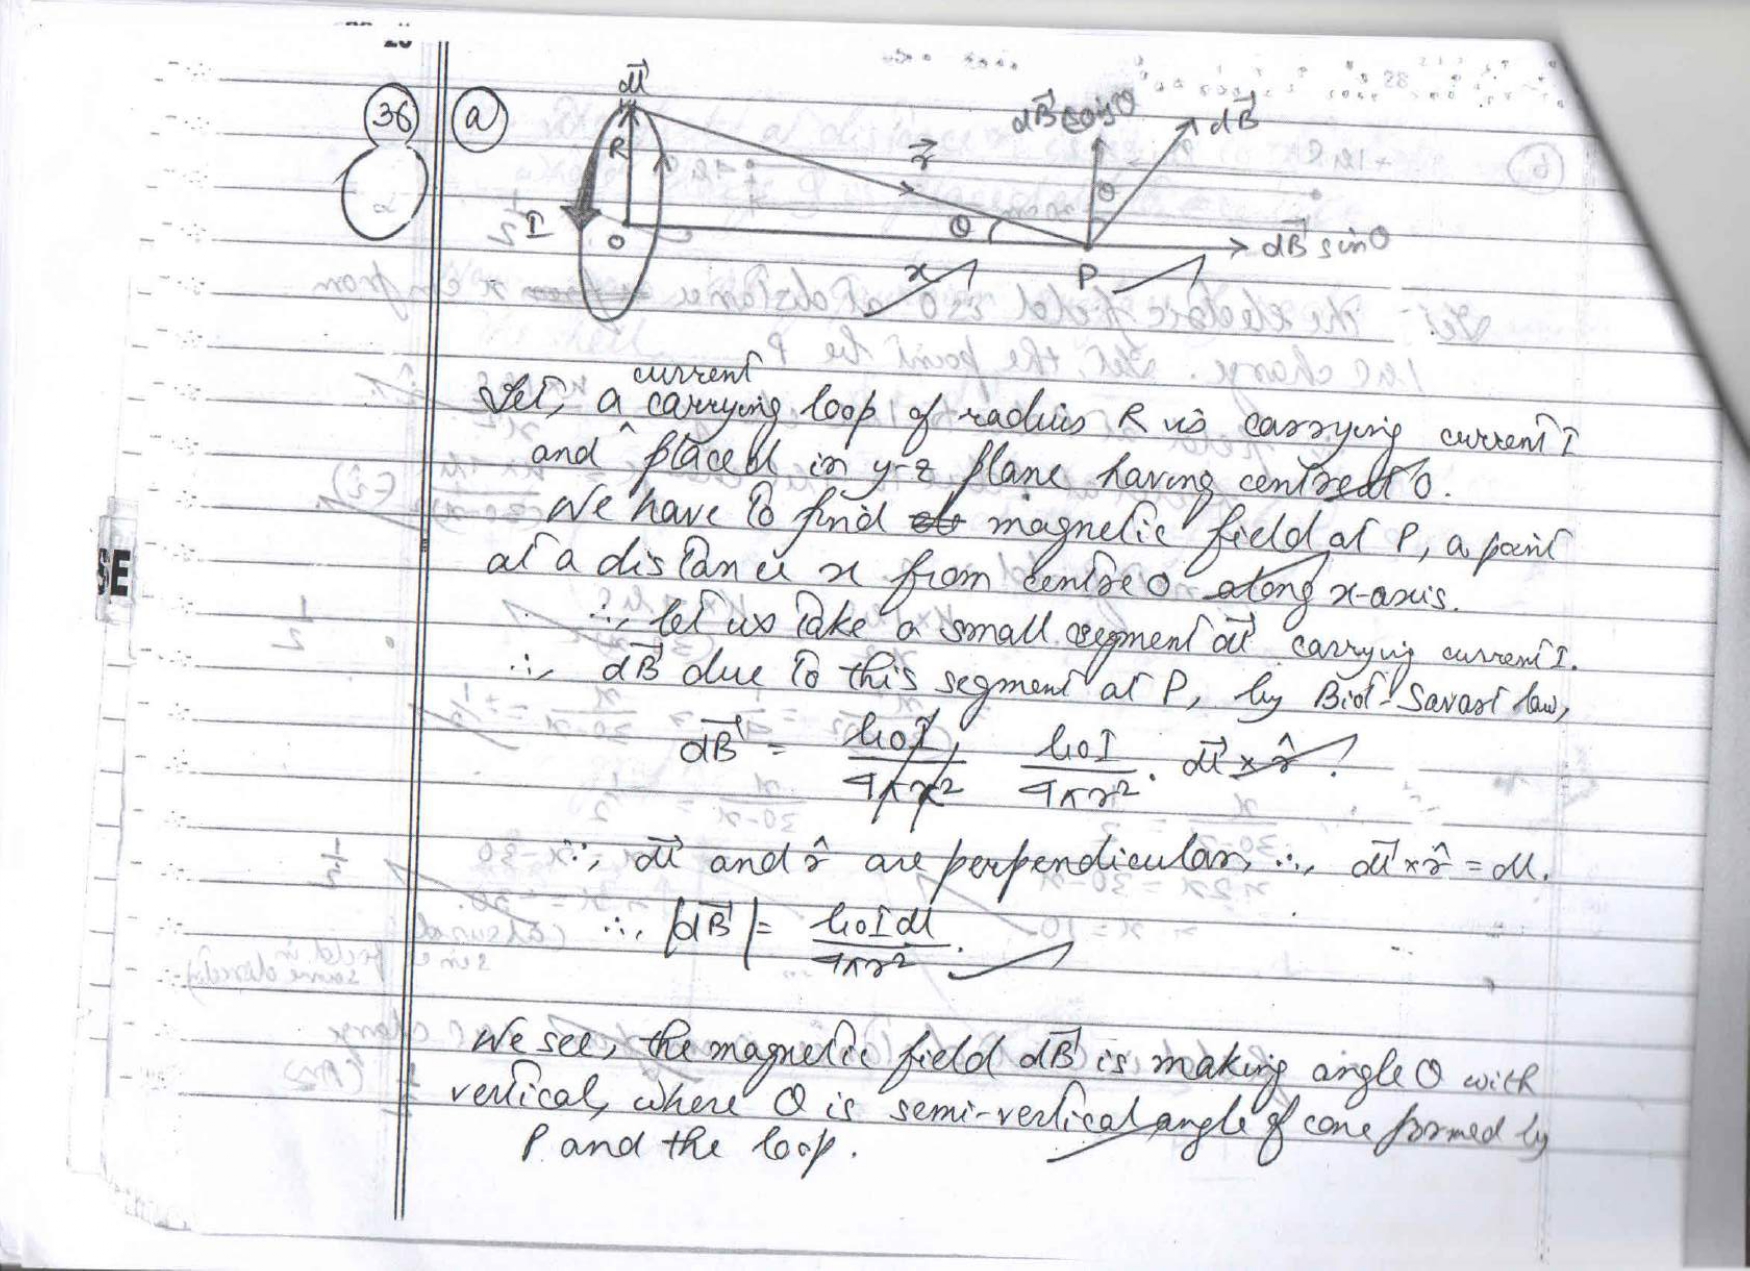 36 a
dl
dB cosθ
dB
R
r
θ
I
O
θ
x
P
dB sinθ
current
Let, a carrying loop of radius R is carrying current I
and placed in y-z plane having centre at O.
We have to find magnetic field at P, a point
at a distance x from centre O along x-axis.
∴, let us take a small segment dl carrying current I.
∴, dB due to this segment at P, by Biot-Savart law,
dB = μ0I/4πx² μ0I/4πr² . dl × r̂ .
∵, dl and r̂ are perpendicular, ∴, dl × r̂ = dl.
∴, |dB| = μ0Idl/4πr² .
We see, the magnetic field dB is making angle θ with
vertical, where θ is semi-vertical angle of cone formed by
P and the loop.
SE